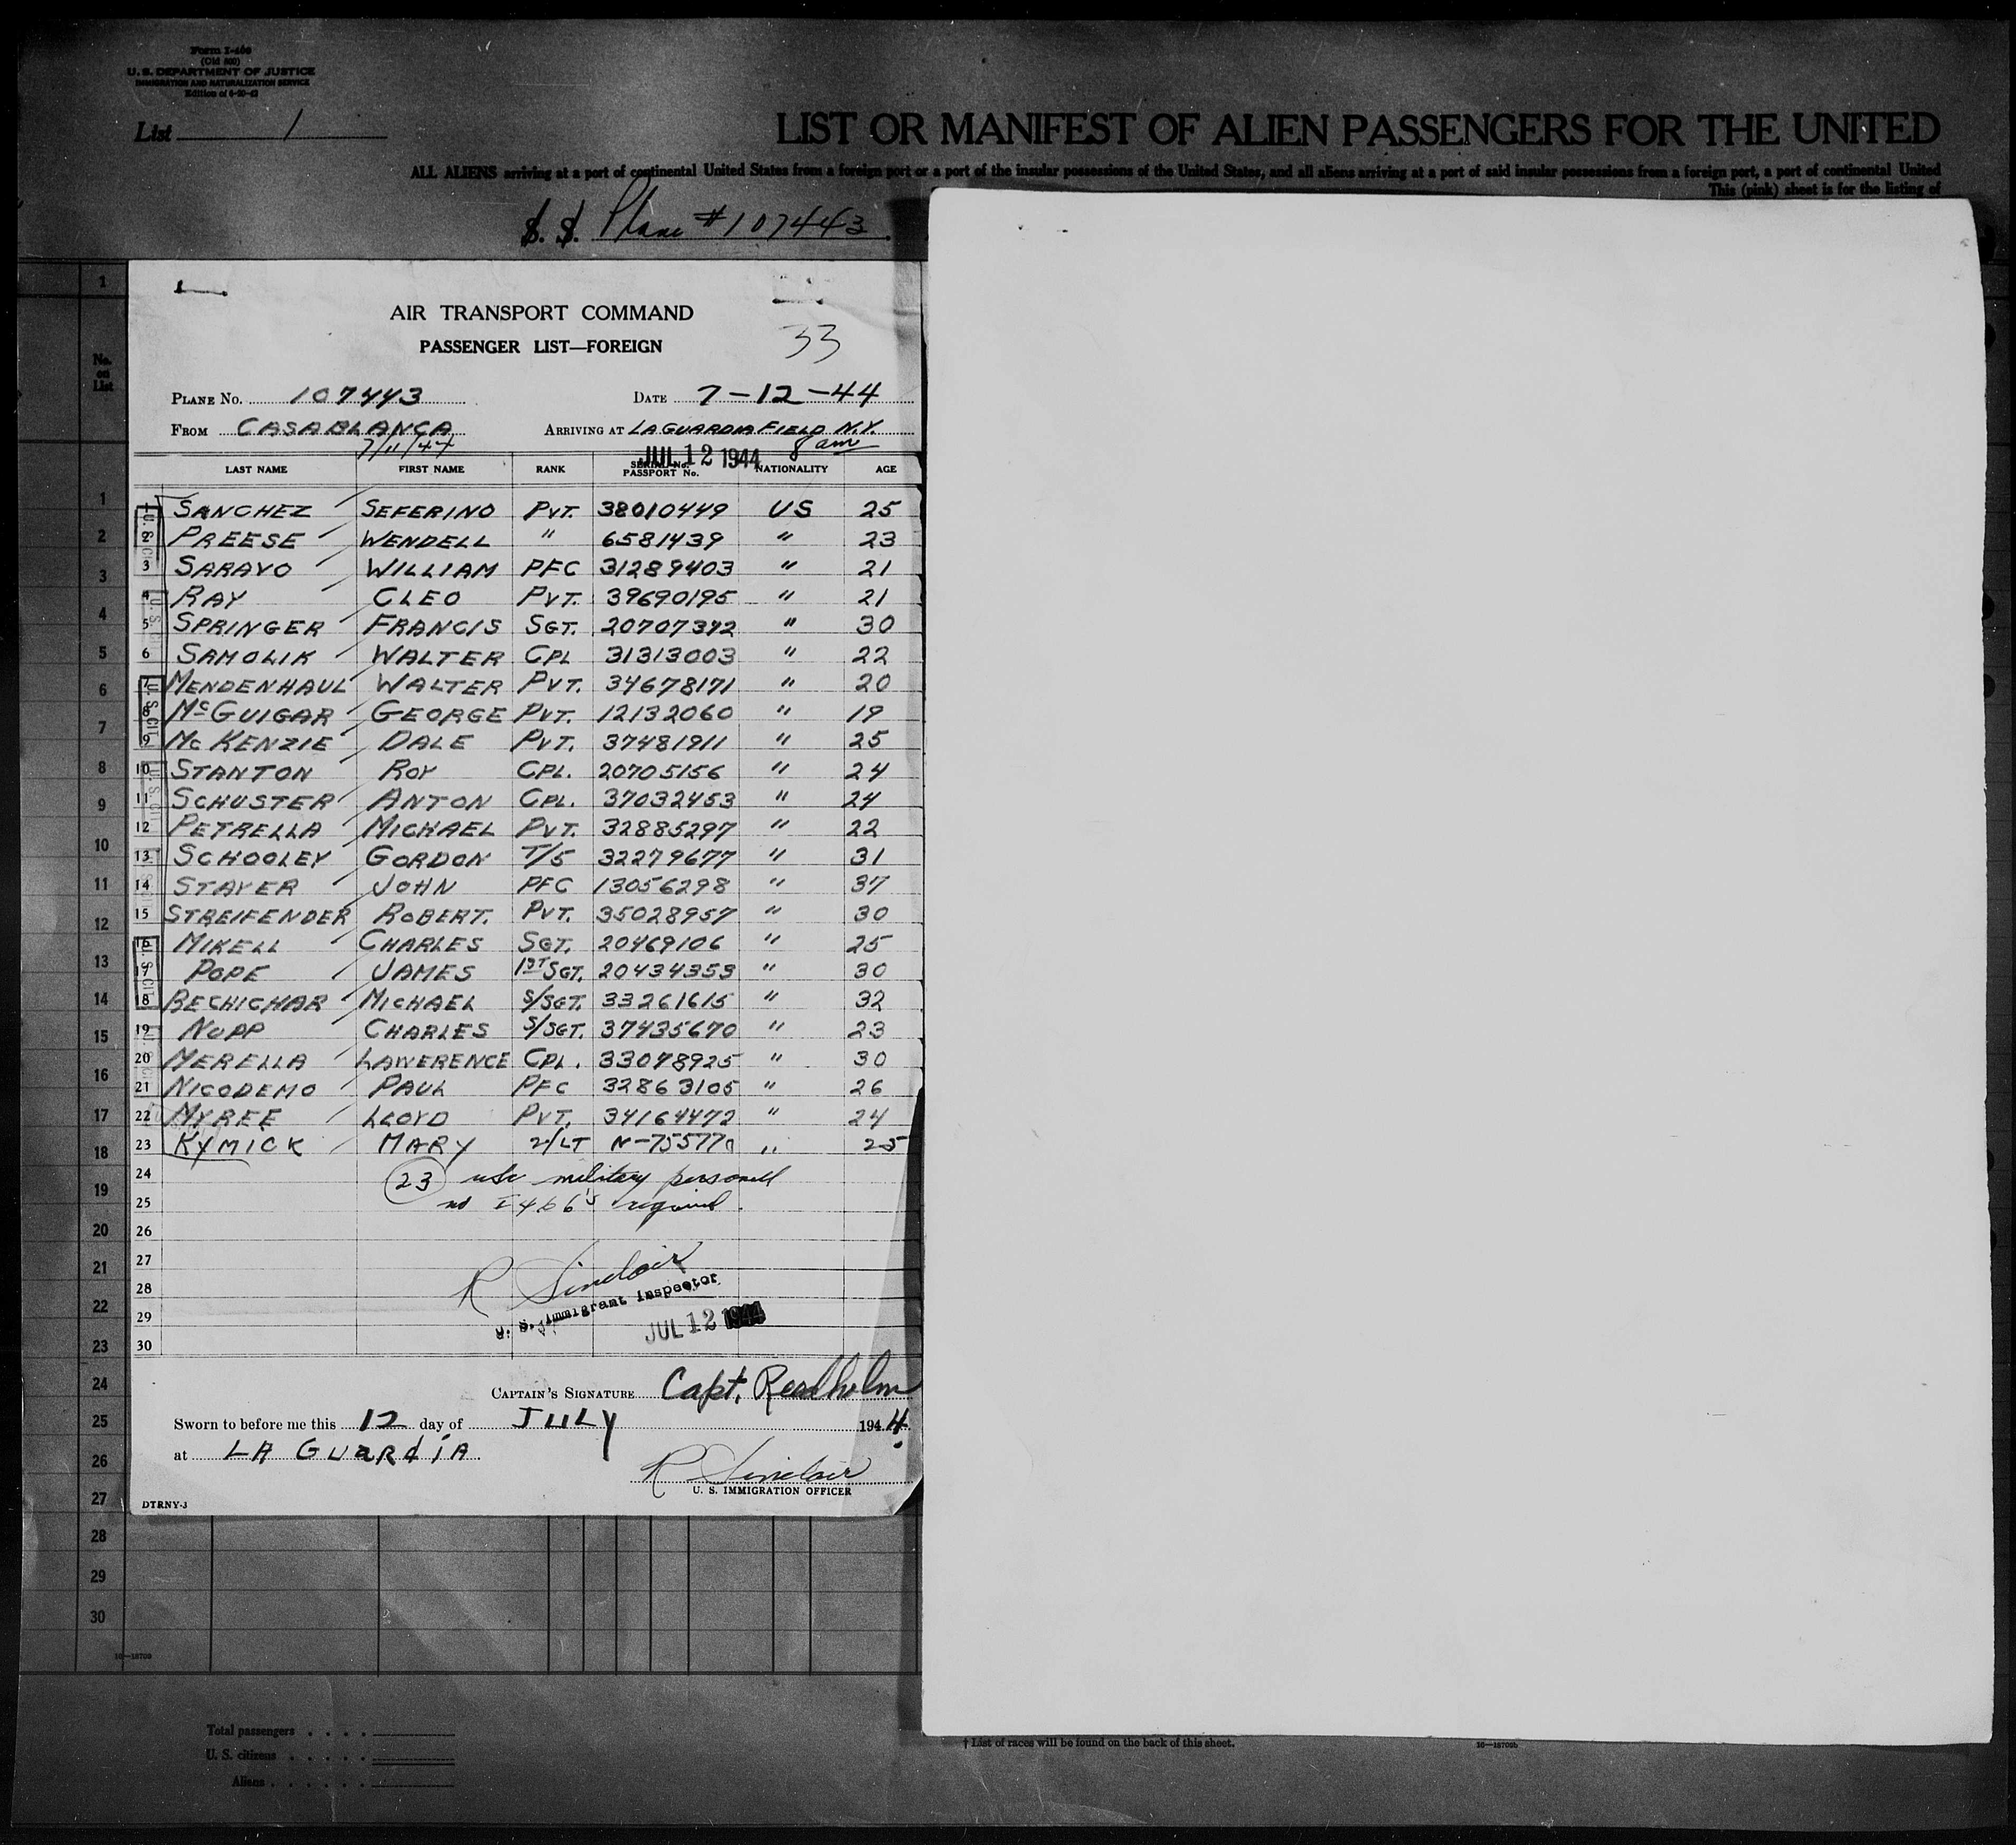 Form I-466
(Old 500)
U. S. DEPARTMENT OF JUSTICE
IMMIGRATION AND NATURALIZATION SERVICE
List 1
LIST OR MANIFEST OF ALIEN PASSENGERS FOR THE UNITED
ALL ALIENS arriving at a port of continental United States from a foreign port or a port of the insular possessions of the United States, and all aliens arriving at a port of said insular possessions from a foreign port, a port of continental United
This (pink) sheet is for the listing of
S. S. Plane #107443
AIR TRANSPORT COMMAND
33
PASSENGER LIST—FOREIGN
PLANE No. 107443 DATE 7-12-44
FROM CASABLANCA ARRIVING AT LAGUARDIA FIELD N.Y.
7/11/44 8 am
JUL 12 1944
LAST NAME FIRST NAME RANK SERIAL No. PASSPORT No. NATIONALITY AGE
1 SANCHEZ SEFERINO PVT. 38010449 US 25
2 PREESE WENDELL " 6581439 " 23
3 SARAVO WILLIAM PFC 31289403 " 21
4 RAY CLEO PVT. 39690195 " 21
5 SPRINGER FRANCIS SGT. 20707392 " 30
6 SAMOLIK WALTER CPL 31313003 " 22
7 MENDENHAUL WALTER PVT. 34678171 " 20
8 McGUIGAR GEORGE PVT. 12132060 " 19
9 McKENZIE DALE PVT. 37481911 " 25
10 STANTON ROY CPL. 20705156 " 24
11 SCHUSTER ANTON CPL. 37032453 " 24
12 PETRELLA MICHAEL PVT. 32885297 " 22
13 SCHOOLEY GORDON T/5 32279677 " 31
14 STAVER JOHN PFC 13056298 " 37
15 STREIFENDER ROBERT. PVT. 35028957 " 30
16 MIKELL CHARLES SGT. 20469106 " 25
17 POPE JAMES 1ST SGT. 20434353 " 30
18 BECHICHAR MICHAEL S/SGT. 33261615 " 32
19 NUPP CHARLES S/SGT. 37435670 " 23
20 MERELLA LAWERENCE CPL. 33078925 " 30
21 NICODEMO PAUL PFC 32863105 " 26
22 MYREE LLOYD PVT. 34164472 " 24
23 KYMICK MARY 2/LT N-755770 " 25
24 23 usc military personell
25 no I466's required.
26
27
28
29
30
R Sinclair
U. S. Immigrant Inspector
JUL 12 1944
CAPTAIN'S SIGNATURE Capt. Readhelm
Sworn to before me this 12 day of JULY 1944.
at LA GUARdiA
R Sinclair
U. S. IMMIGRATION OFFICER
DTRNY-J
No. on List
1
2
3
4
5
6
7
8
9
10
11
12
13
14
15
16
17
18
19
20
21
22
23
24
25
26
27
28
29
30
Total passengers
U. S. citizens
Aliens
† List of races will be found on the back of this sheet.